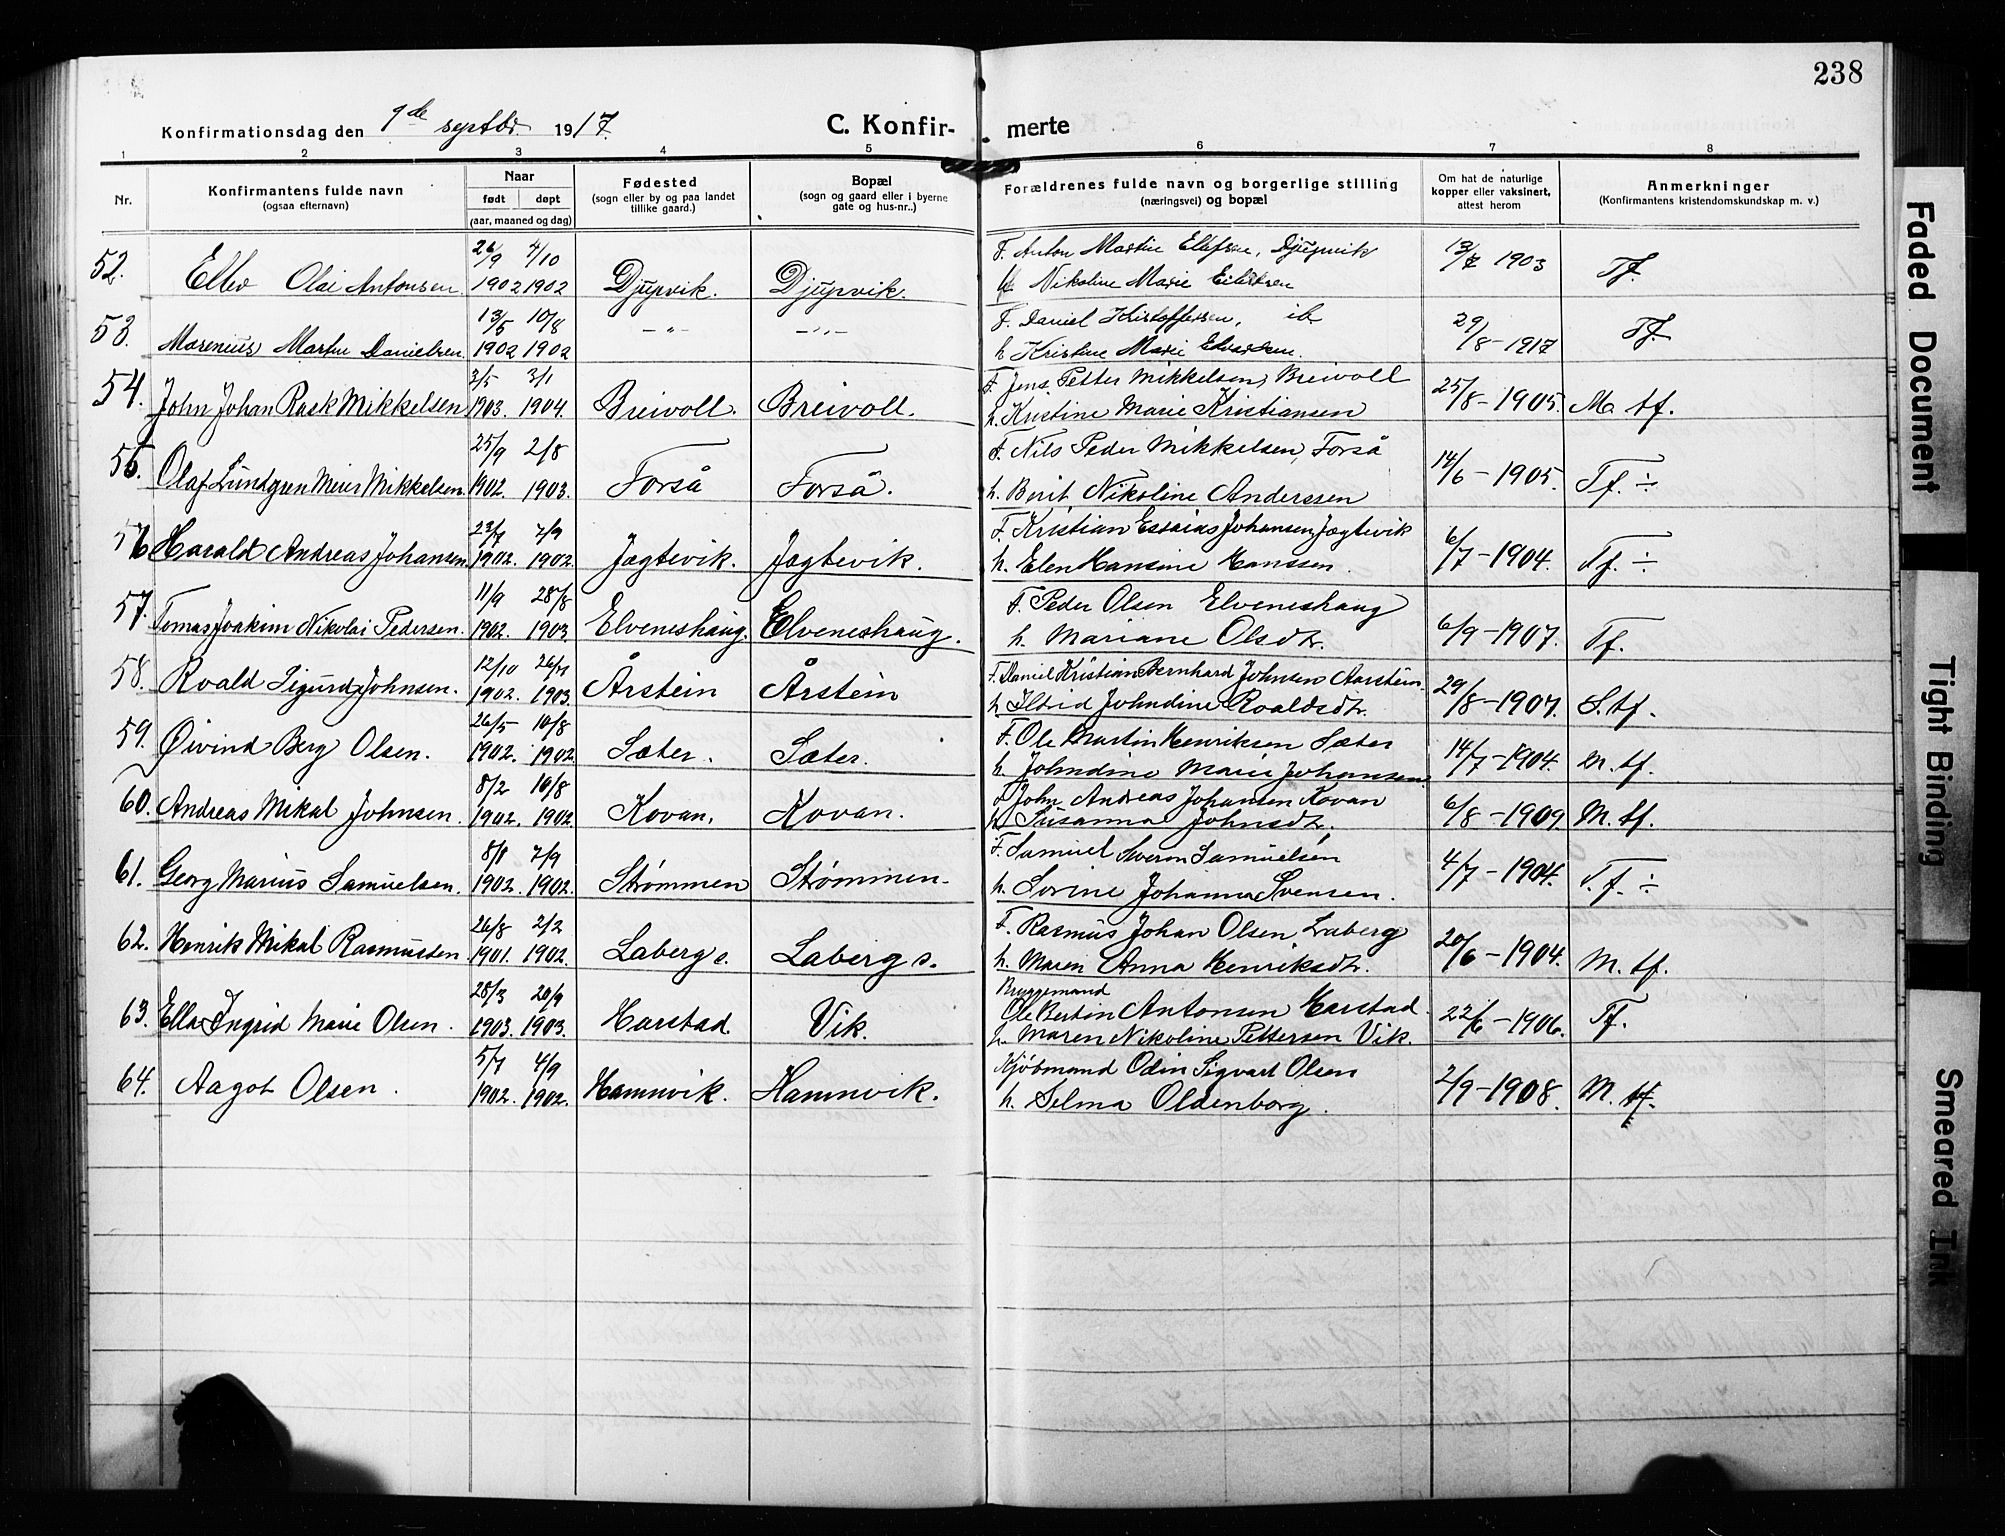 238
Konfirmationsdag den 9de septbr. 1917.
C. Konfir- merte
1 2 3 4 5 6 7 8
Nr.
Konfirmantens fulde navn
(ogsaa efternavn)
Naar
født døpt
(aar, maaned og dag)
Fødested
(sogn eller by og paa landet
tillike gaard.)
Bopæl
(sogn og gaard eller i byerne
gate og hus-nr..)
Forældrenes fulde navn og borgerlige stilling
(næringsvei) og bopæl
Om hat de naturlige
kopper eller vaksinert,
attest herom
Anmerkninger
(Konfirmantens kristendomskundskap m. v.)
26/9 4/10 F. Anton Martin Ellefsen, Djupvik
52. Olai Antonsen 1902 1902 Djupvik. Djupvik. h. Nikoline Marie Eilertsen 13/7 1903 Tf.
13/5 10/8 F. Daniel Kristoffersen, ib.
53. Marenius Martin Danielsen 1902 1902 -"- -"- h. Kristine Marie 29/8-1917 Tf.
3/5 3/1 F. Jens Petter Mikkelsen, Breivoll
54. John Johan Rask Mikkelsen 1903. 1904. Breivoll. Breivoll. h. Kristine Marie Kristiansen 25/8-1905. M tf.
25/9 2/8 F. Nils Peder Mikkelsen, Forså
55. Olaf Lundgren Meier Mikkelsen 1902. 1903. Forså Forså. h. Berit Nikoline Anderssen 14/6-1905. Tf. ÷
23/7 7/9 F. Kristian Essaias Johansen, Jægtevik
56 Harald Andreas Johansen 1902. 1902. Jægtevik. Jægtevik. h. Elen Hansine Hanssen. 6/7-1904. Tf. ÷
11/9 28/8 F. Peder Olsen Elveneshaug
57. Tomas Joakim Nikolai Pedersen. 1902. 1903 Elveneshaug. Elveneshaug. h. Mariane Olsdtr. 6/9-1907. Tf.
12/10 26/7 F. Daniel Kristian Bernhard Johnsens Aarstein
58. Roald Sigurd Johnsen. 1902. 1903. Årstein Årstein h. Johndine Roaldsdtr. 29/8-1907. S. tf.
26/5 10/8 F. Ole Martin Henriksen Sæter
59. Øivind Berg Olsen. 1902. 1902. Sæter. Sæter. h. Johndine Marie Johansen 14/7-1904. M. tf.
8/2 10/8 F. John Andreas Johansen Kovan
60. Andreas Mikal Johnsen. 1902. 1902. Kovan. Kovan. h. Susanna Johnsdtr. 6/8-1909. M. tf.
8/8 7/9 F. Samuel Samuelsen
61. Georg Marius Samuelsen. 1902. 1902. Strømmen Strømmen. h. Sorine Johanna Svensen. 4/7-1904. T.f. ÷
26/8 2/2 F. Rasmus Johan Olsen Laberg
62. Henrik Mikal Rasmussen 1901. 1902. Laberg s. Laberg s. h. Maren Anna Henriksdtr. 20/6-1904. M. tf.
28/3 20/9 Bryggemand
Ole Bertin Antonsen Harstad.
63. Ella Ingrid Marie Olsen. 1903. 1903. Harstad. Vik. h. Maren Nikoline Pettersen Vik. 22/6-1906. Tf.
5/7 4/9 Kjøbmand Odin Sigvart Olsen
64. Aagot Olsen. 1902. 1902. Hamnvik. Hamnvik. h. Selma Oldenborg. 2/9-1908. M. tf.
Faded Document
Tight Binding
Smeared Ink